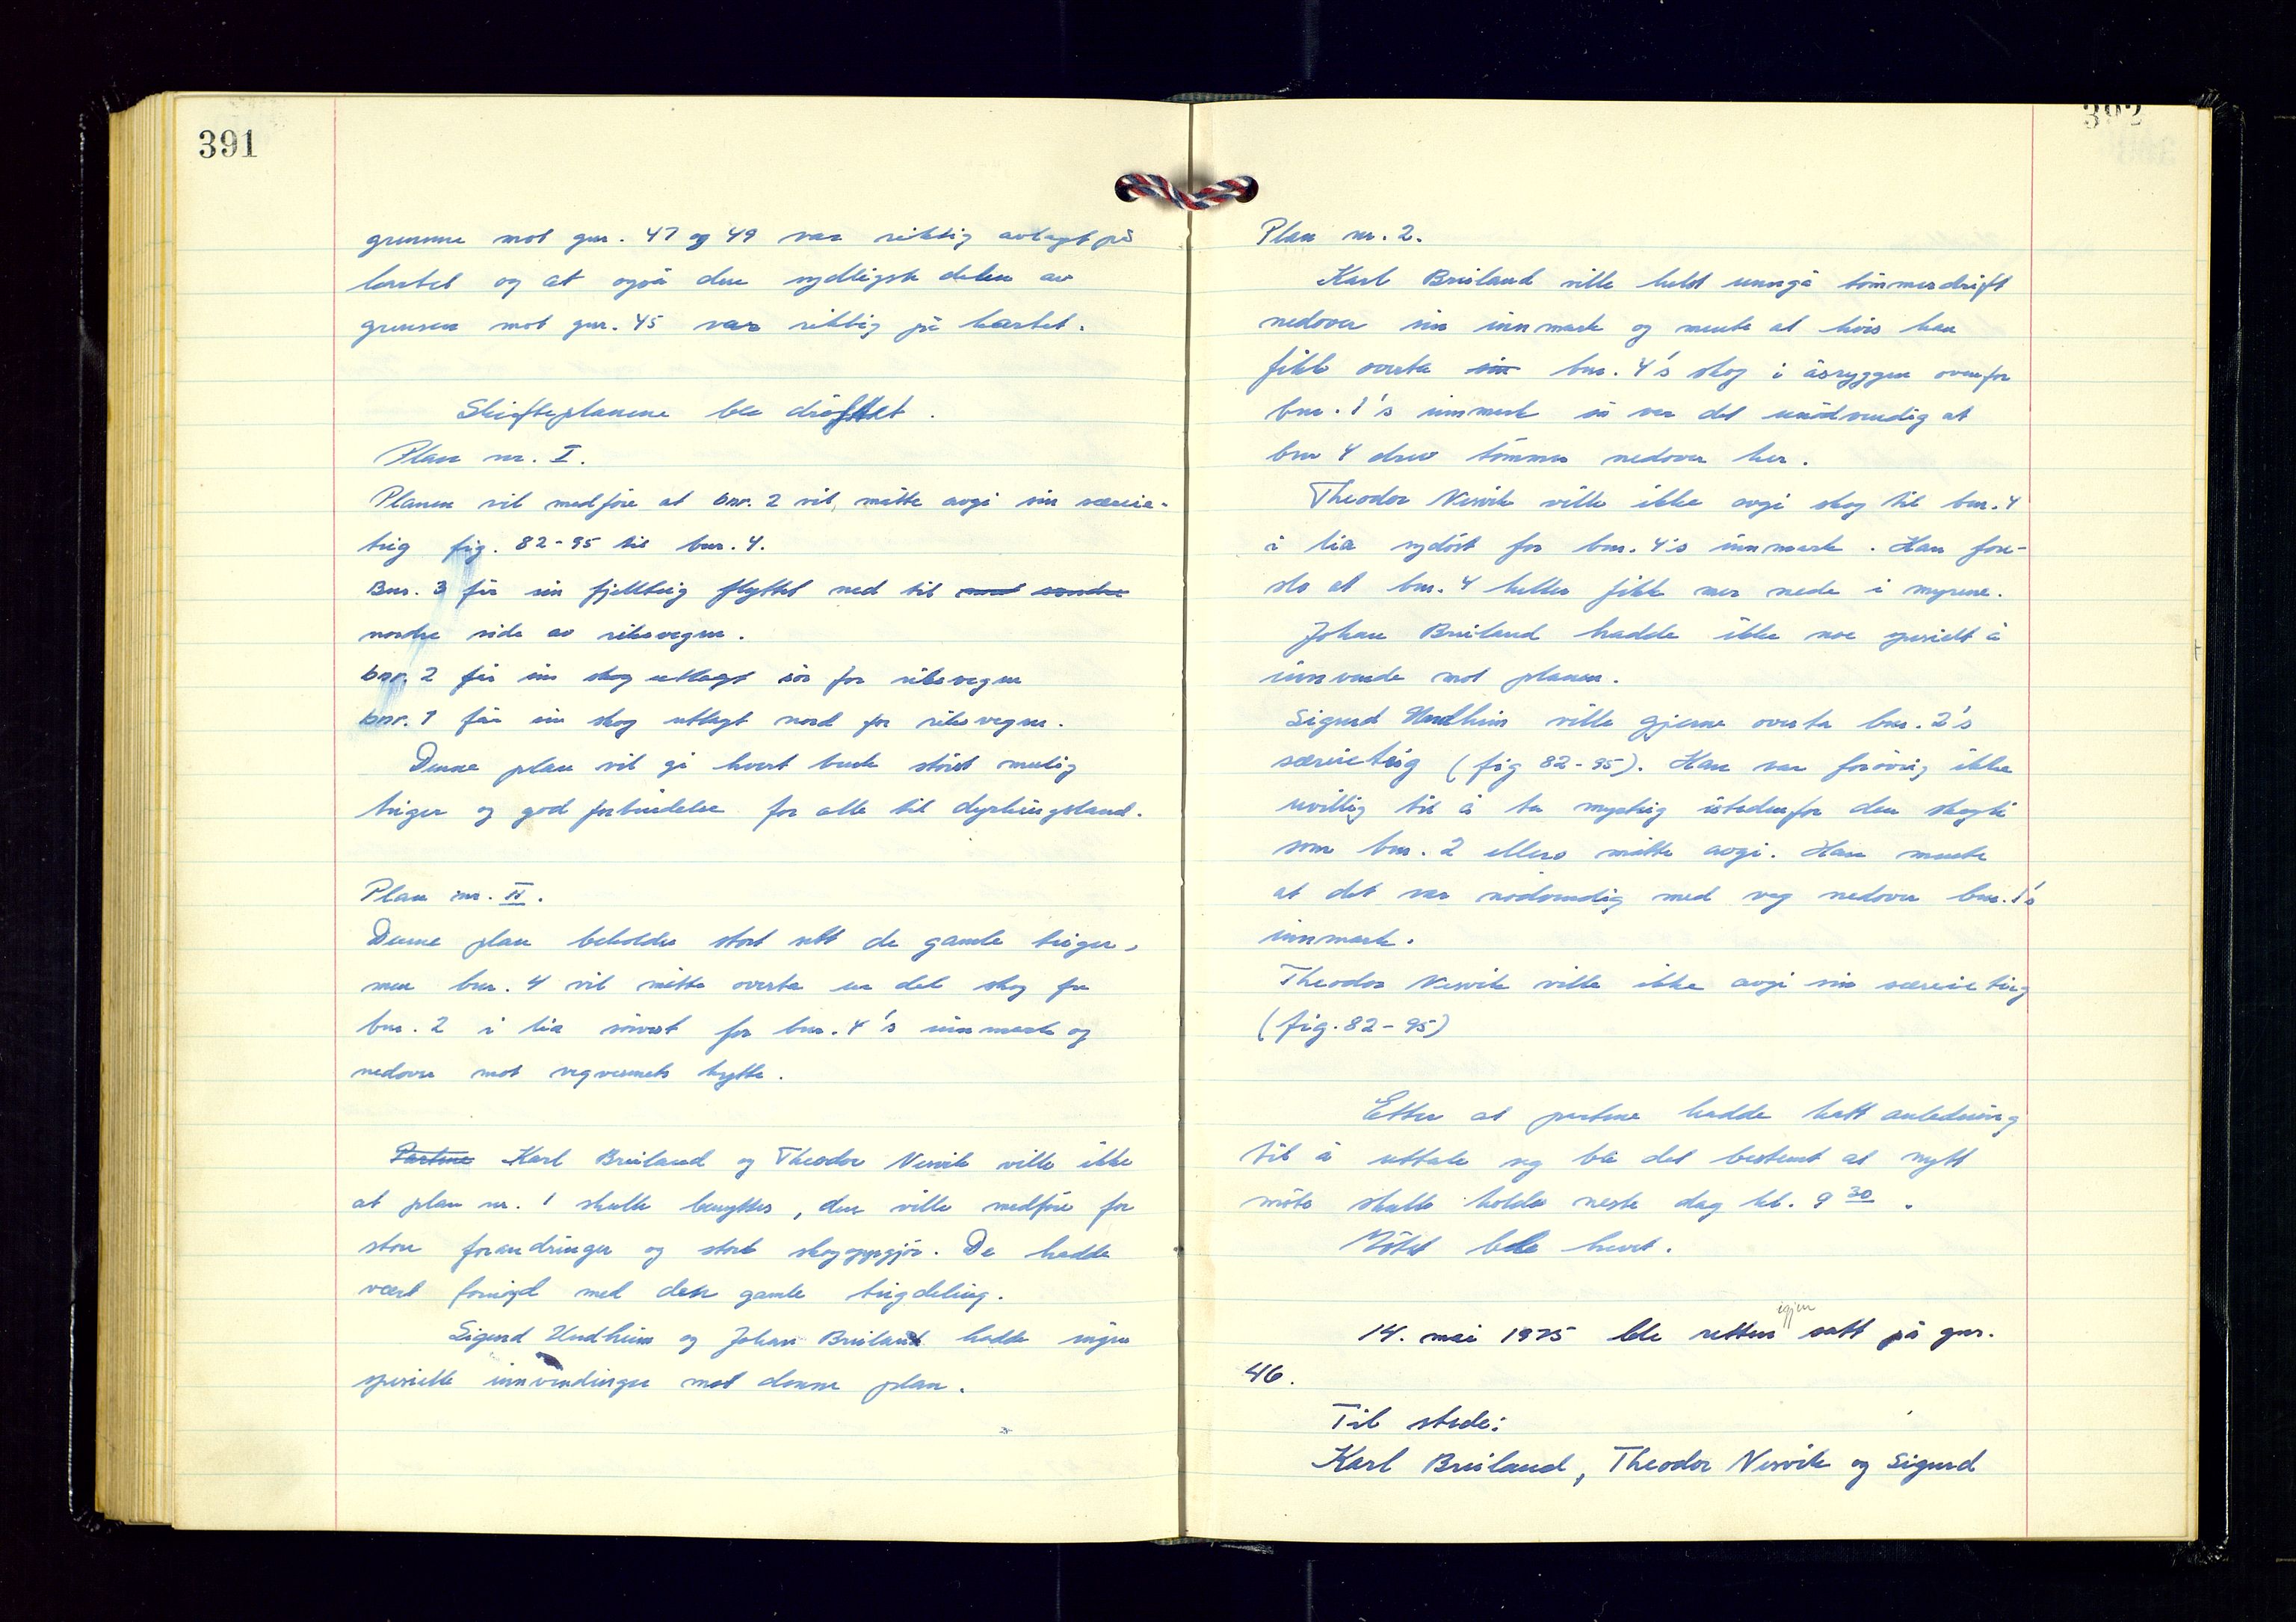 391
grensene mot gnr. 47 og 49 var riktig avlagt på
kartet og at også den sydligste delen av
grensen mot gnr. 45 var riktig på kartet.
Skifteplanene ble drøftet.
Plan nr. I.
Planen vil medføre at bnr. 2 vil måtte avgi sin særeie-
teig fig. 82-95 til bnr. 4.
Bnr. 3 får sin fjellteig flyttet ned til mot søndre
nordre side av riksvegen.
bnr. 2 får sin skog utlagt sør for riksvegen
bnr. 1 får sin skog utlagt nord for riksvegen.
Denne plan vil gi hvert bruk störst mulig
teiger og god forbindelse for alle til dyrkingsland.
Plan nr. II.
Denne plan beholder stort sett de gamle teiger,
men bnr. 4 vil måtte overta en del skog fra
bnr. 2 i lia sørvest for bnr. 4's innmark og
nedover mot vegvesenets hytte.
Partene Karl Breiland og Theodor Nesvik ville ikke
at plan nr. 1 skulle benyttes, den ville medføre for
store forandringer og stort skogoppgjör. De hadde
vært fornøyd med den gamle teigdeling.
Sigurd Undheim og Johan Breiland hadde ingen
spesielle innvendinger mot denne plan.
392
Plan nr. 2.
Karl Breiland ville helst unngå tömmerdrift
nedover sin innmark og mente at hvis han
fikk overta sin bnr. 4's skog i åsryggen ovenfor
bnr. 1's innmark så var det unödvendig at
bnr 4 drev tömmer nedover her.
Theodor Nesvik ville ikke avgi skog til bnr. 4
i lia sydöst for bnr. 4's innmark. Han fore-
slo at bnr. 4 heller fikk mer nede i myrene.
Johan Breiland hadde ikke noe spesielt å
innvende mot planen.
Sigurd Undheim ville gjerne overta bnr. 2's
særeieteig (fig 82-95). Han var forövrig ikke
uvillig til å ta myrteig istedenfor den skogli
som bnr. 2 ellers måtte avgi. Han mente
at det var nødvendig med veg nedover bnr. 1's
innmark.
Theodor Nesvik ville ikke avgi sin særeieteig
(fig. 82-95)
Etter at partene hadde hatt anledning
til å uttale seg ble det bestemt at nytt
møte skulle holdes neste dag kl. 9 30.
Mötet ble hevet.
igjen
14. mai 1975 ble retten satt på gnr.
46.
Til stede:
Karl Breiland, Theodor Nesvik og Sigurd